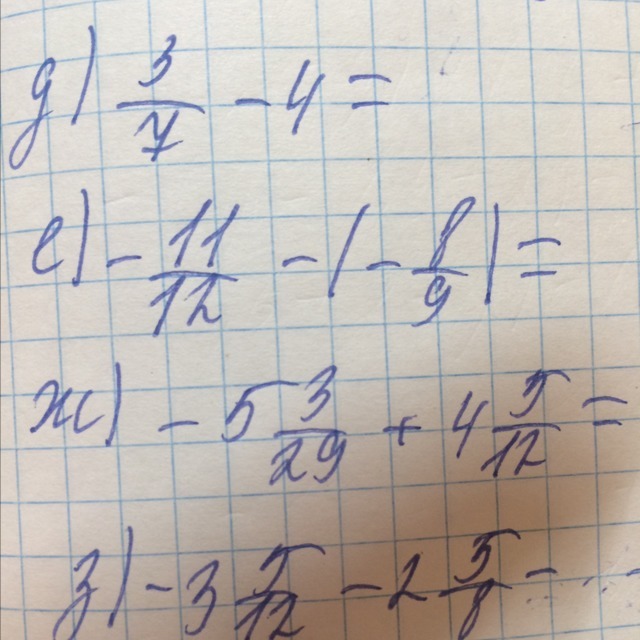 д) 3/7 - 4 =
е) - 11/12 - (- 8/9) =
ж) - 5 3/29 + 4 5/12 =
з) - 3 5/12 - 2 5/8 =